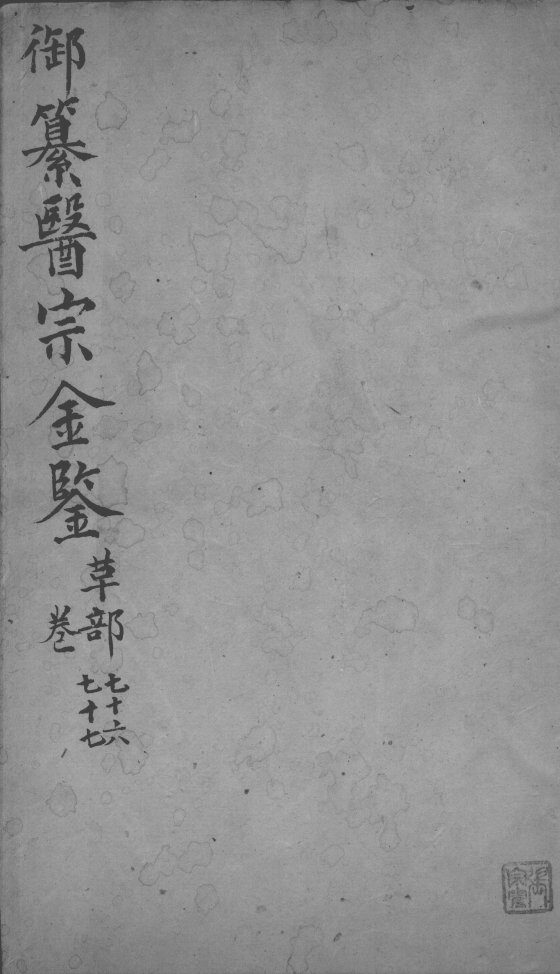 御纂醫宗金鑒
草部
巻
七十六
七十七